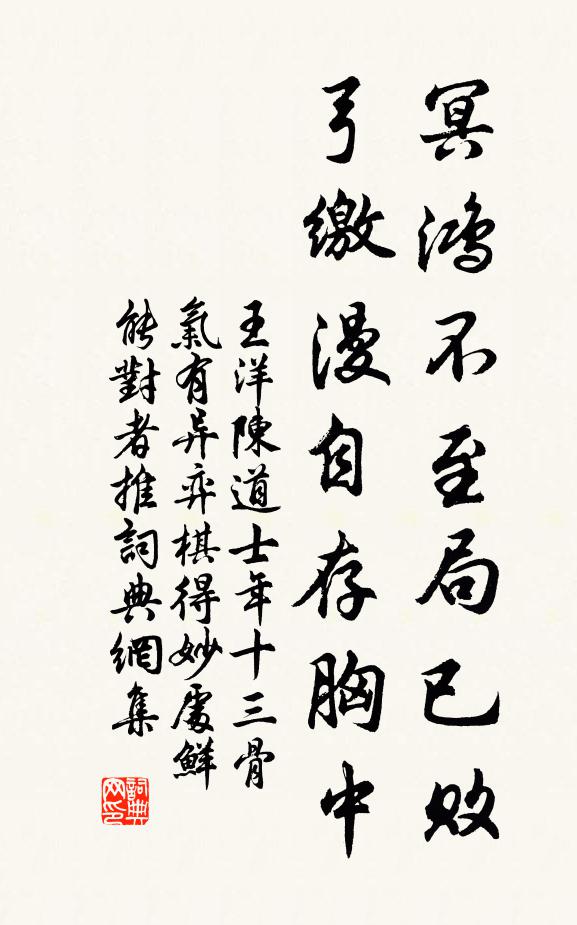 冥鴻不至局已敗
弓繳漫自存胸中
王洋陳道士年十三骨
氣有异弈棋得妙處鮮
能對者推詞典網集
詞典
网印